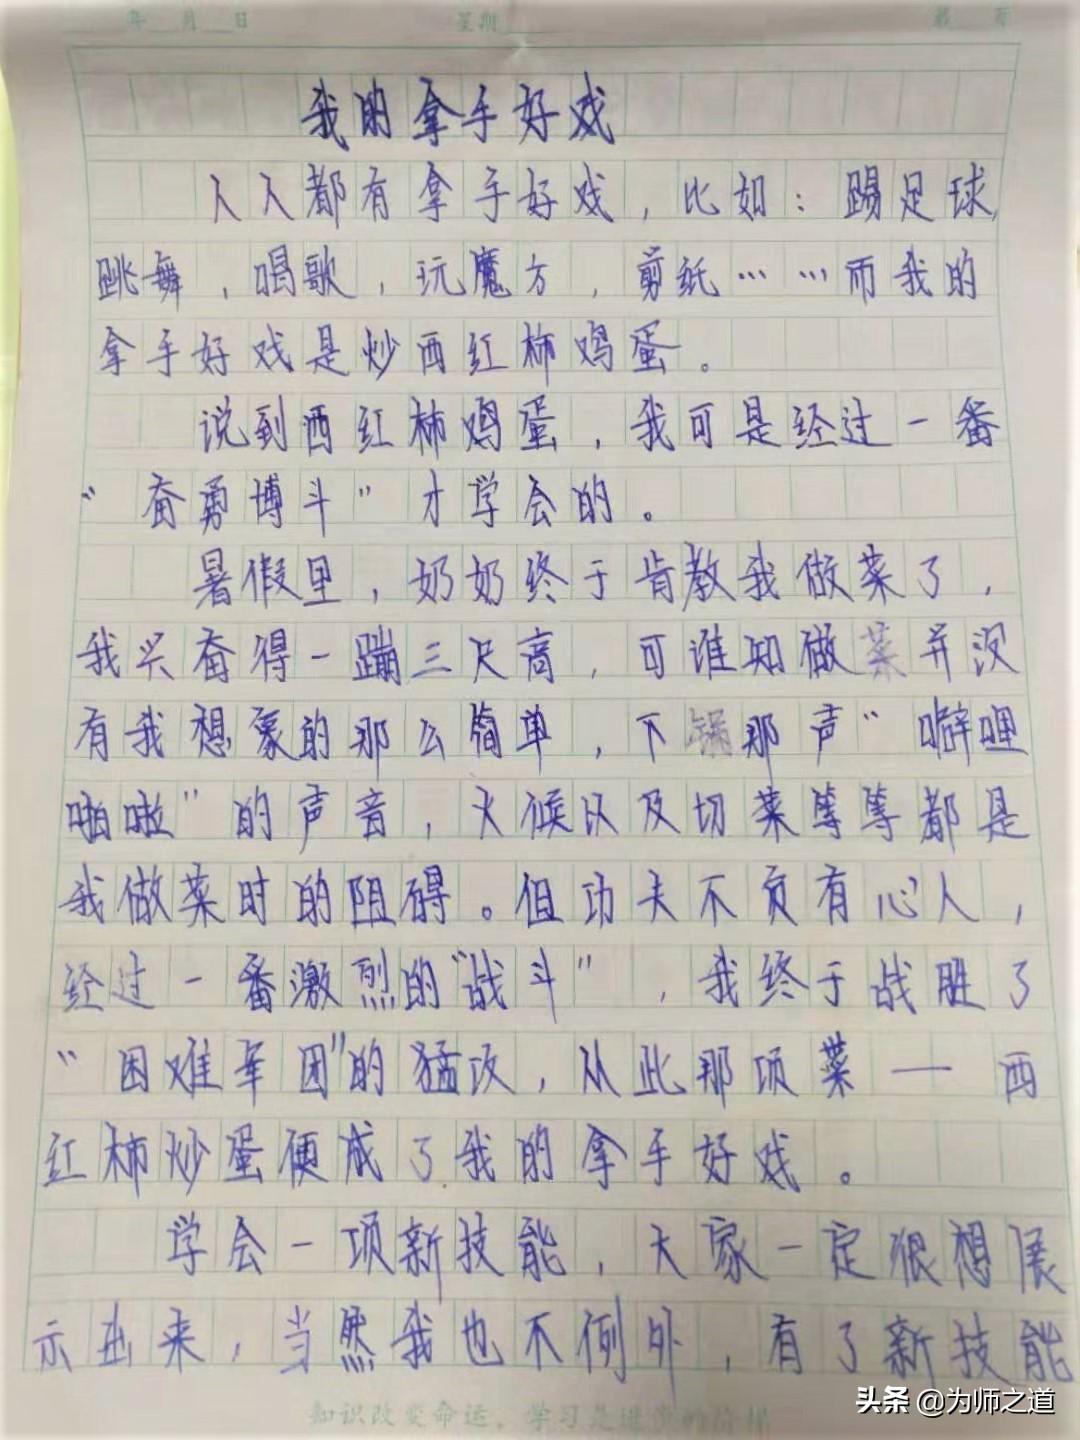 年 月 日 星期 第 页
我的拿手好戏
人人都有拿手好戏，比如：踢足球，
跳舞，唱歌，玩魔方，剪纸……而我的
拿手好戏是炒西红柿鸡蛋。
说到西红柿鸡蛋，我可是经过一番
“奋勇博斗”才学会的。
暑假里，奶奶终于肯教我做菜了，
我兴奋得一蹦三尺高，可谁知做菜并没
有我想象的那么简单，下锅那声“噼哩
啪啦”的声音，火候以及切菜等等都是
我做菜时的阻碍。但功夫不负有心人，
经过一番激烈的“战斗”，我终于战胜了
“困难军团”的猛攻，从此那项菜——西
红柿炒蛋便成了我的拿手好戏。
学会一项新技能，大家一定很想展
示出来，当然我也不例外，有了新技能
知识改变命运，学习是进步的阶梯
头条 @为师之道